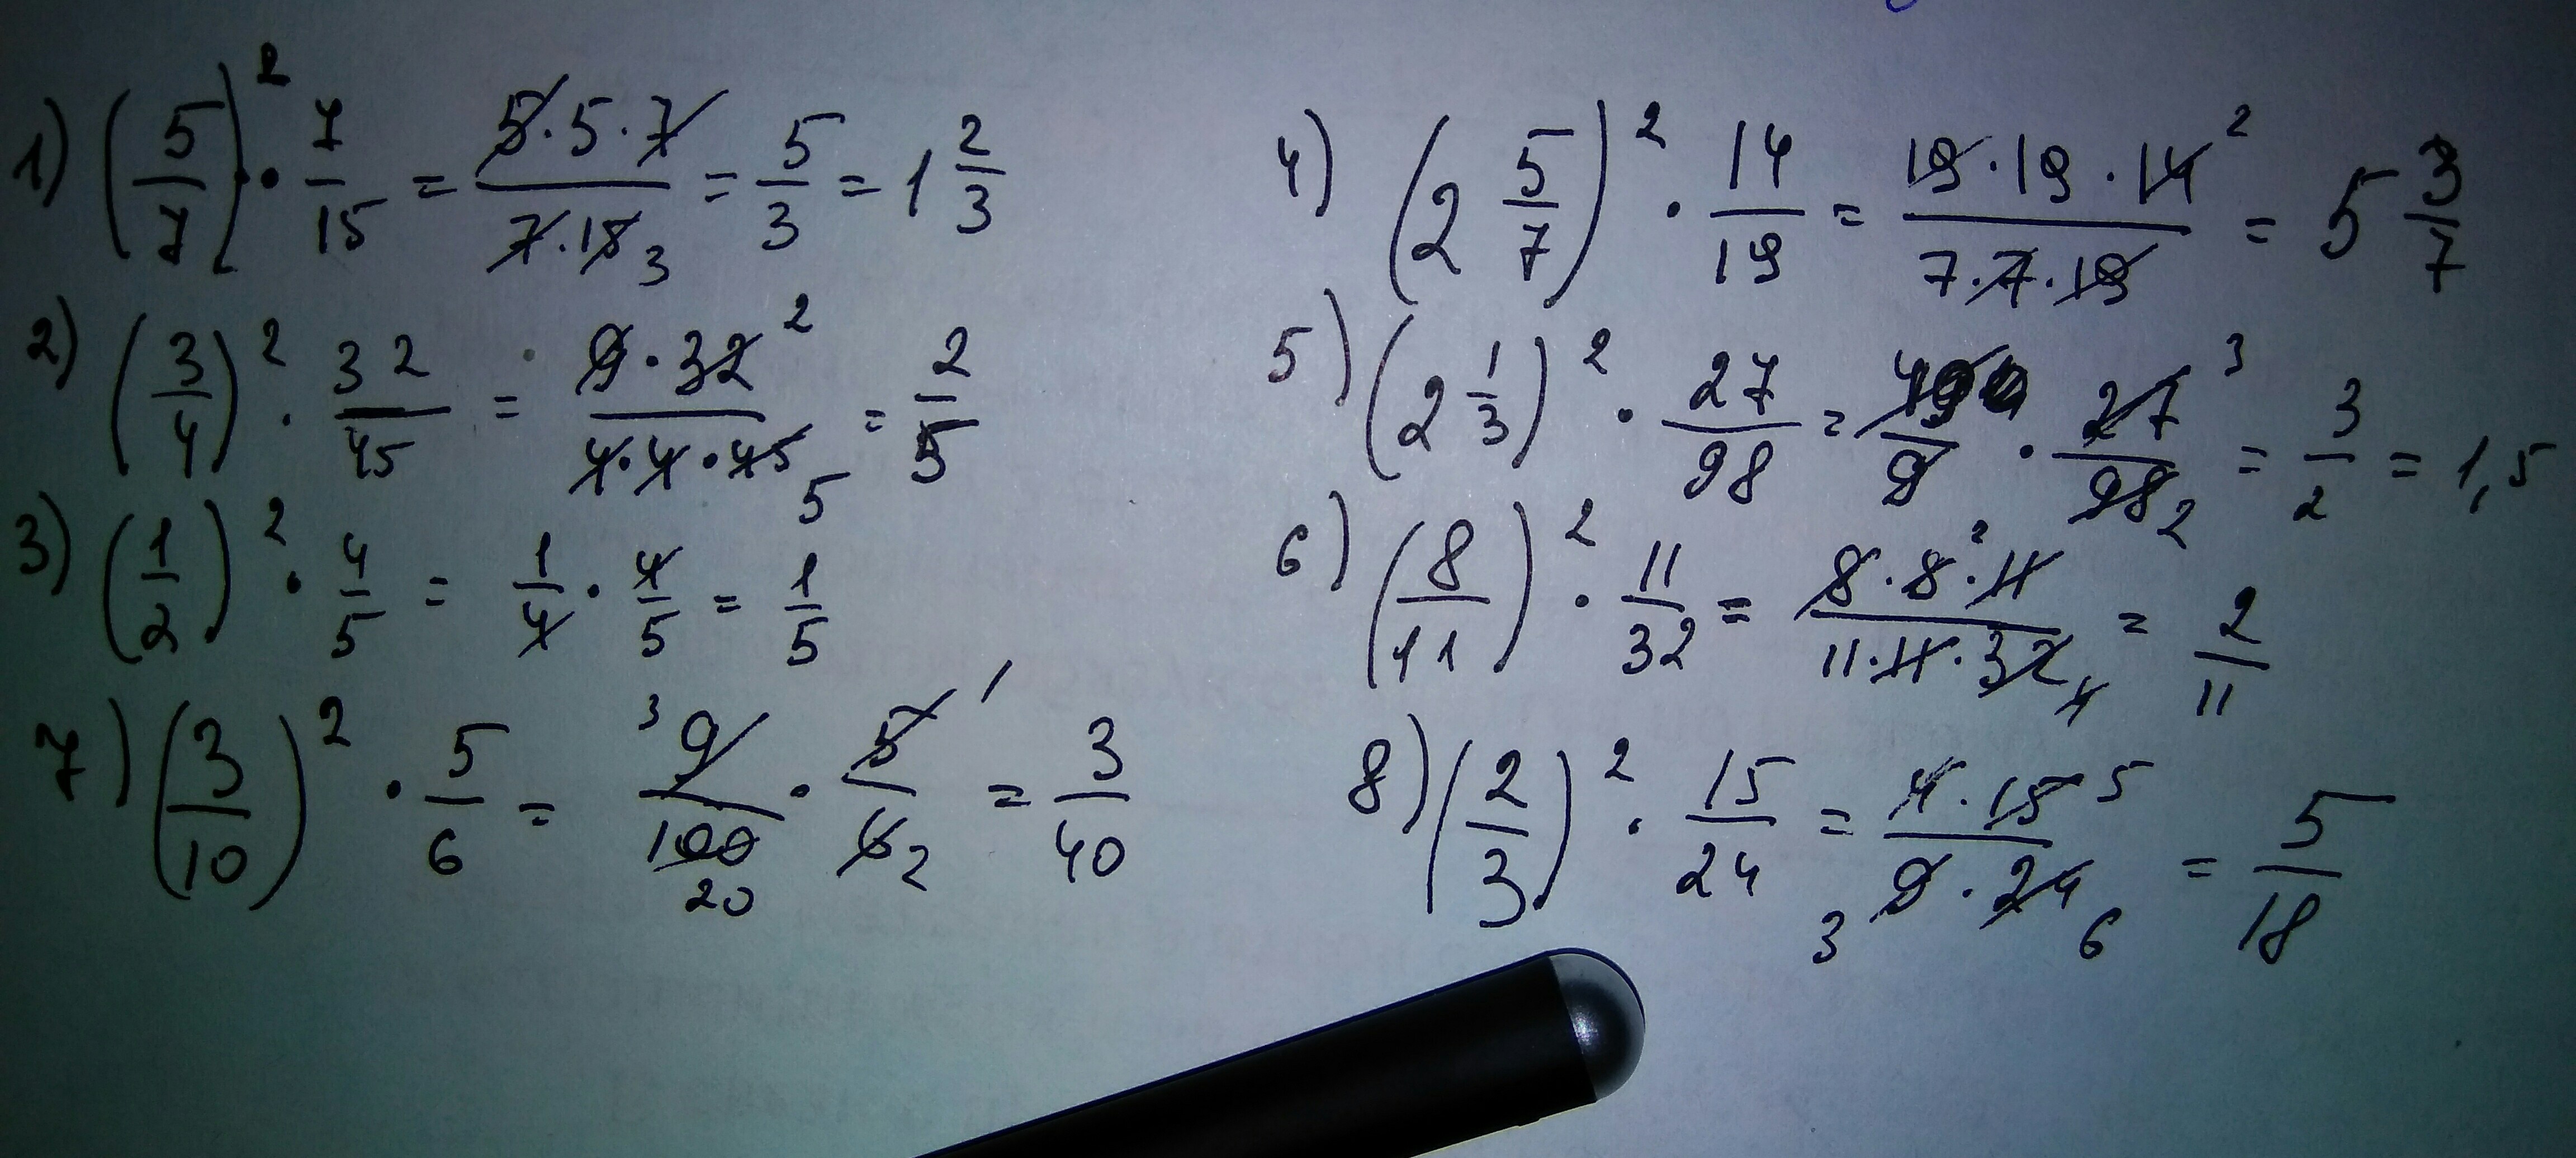 1) (5/7)² · 7/15 = 5·5·7/7·15 3 = 5/3 = 1 2/3
2) (3/4)² · 32/45 = 9·32 2/4·4·45 5 = 2/5
3) (1/2)² · 4/5 = 1/4 · 4/5 = 1/5
7) (3/10)² · 5/6 = 3 9/100 20 · 5 1/6 2 = 3/40
4) (2 5/7)² · 14/19 = 19·19·14 2/7·7·19 = 5 3/7
5) (2 1/3)² · 27/98 = 49/9 · 27 3/98 2 = 3/2 = 1,5
6) (8/11)² · 11/32 = 8·8 2·11/11·11·32 4 = 2/11
8) (2/3)² · 15/24 = 4·15 5/3 9·24 6 = 5/18